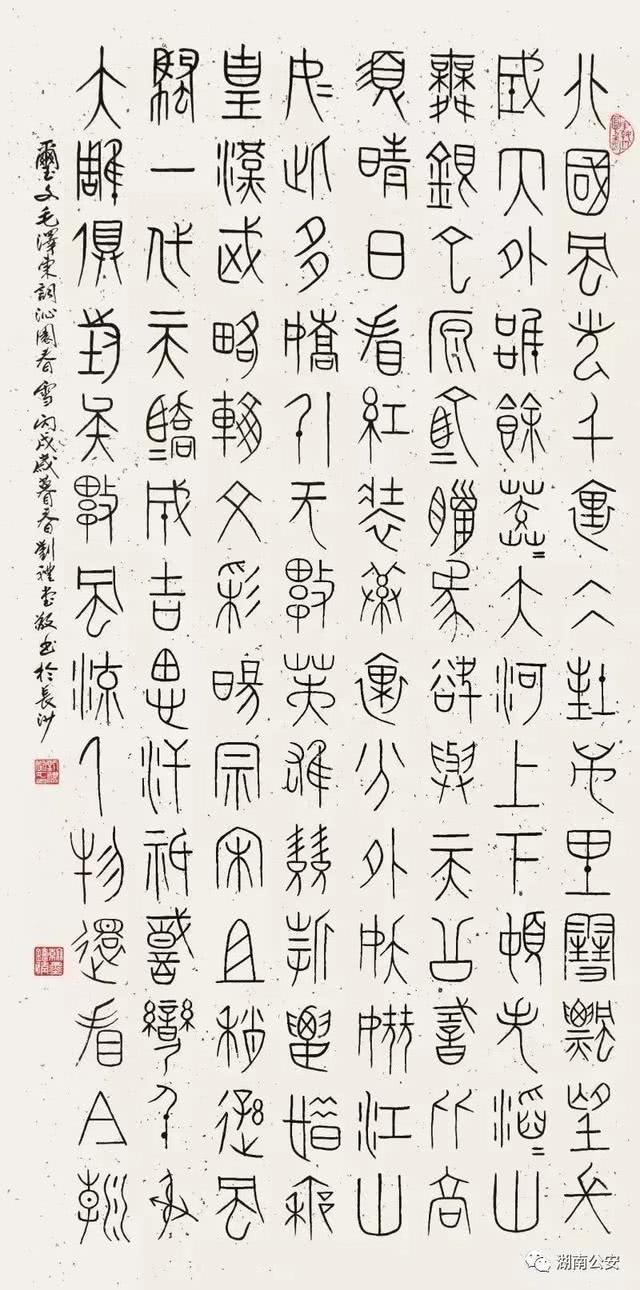 北國風光千里冰封萬里雪飄望長
城內外唯餘莽〓大河上下頓失滔〓山
舞銀蛇原馳蠟象欲與天公試比高
須晴日看紅裝素裹分外妖嬈江山
如此多嬌引无數英雄競折腰惜秦
皇漢武略輸文彩唐宗宋祖稍遜風
騷一代天驕成吉思汗祇識彎弓射
大雕俱往矣數風流人物還看今朝
璽文毛澤東詞沁園春雪丙戌歲暮春劉禮堂敬書於長沙
湖南公安